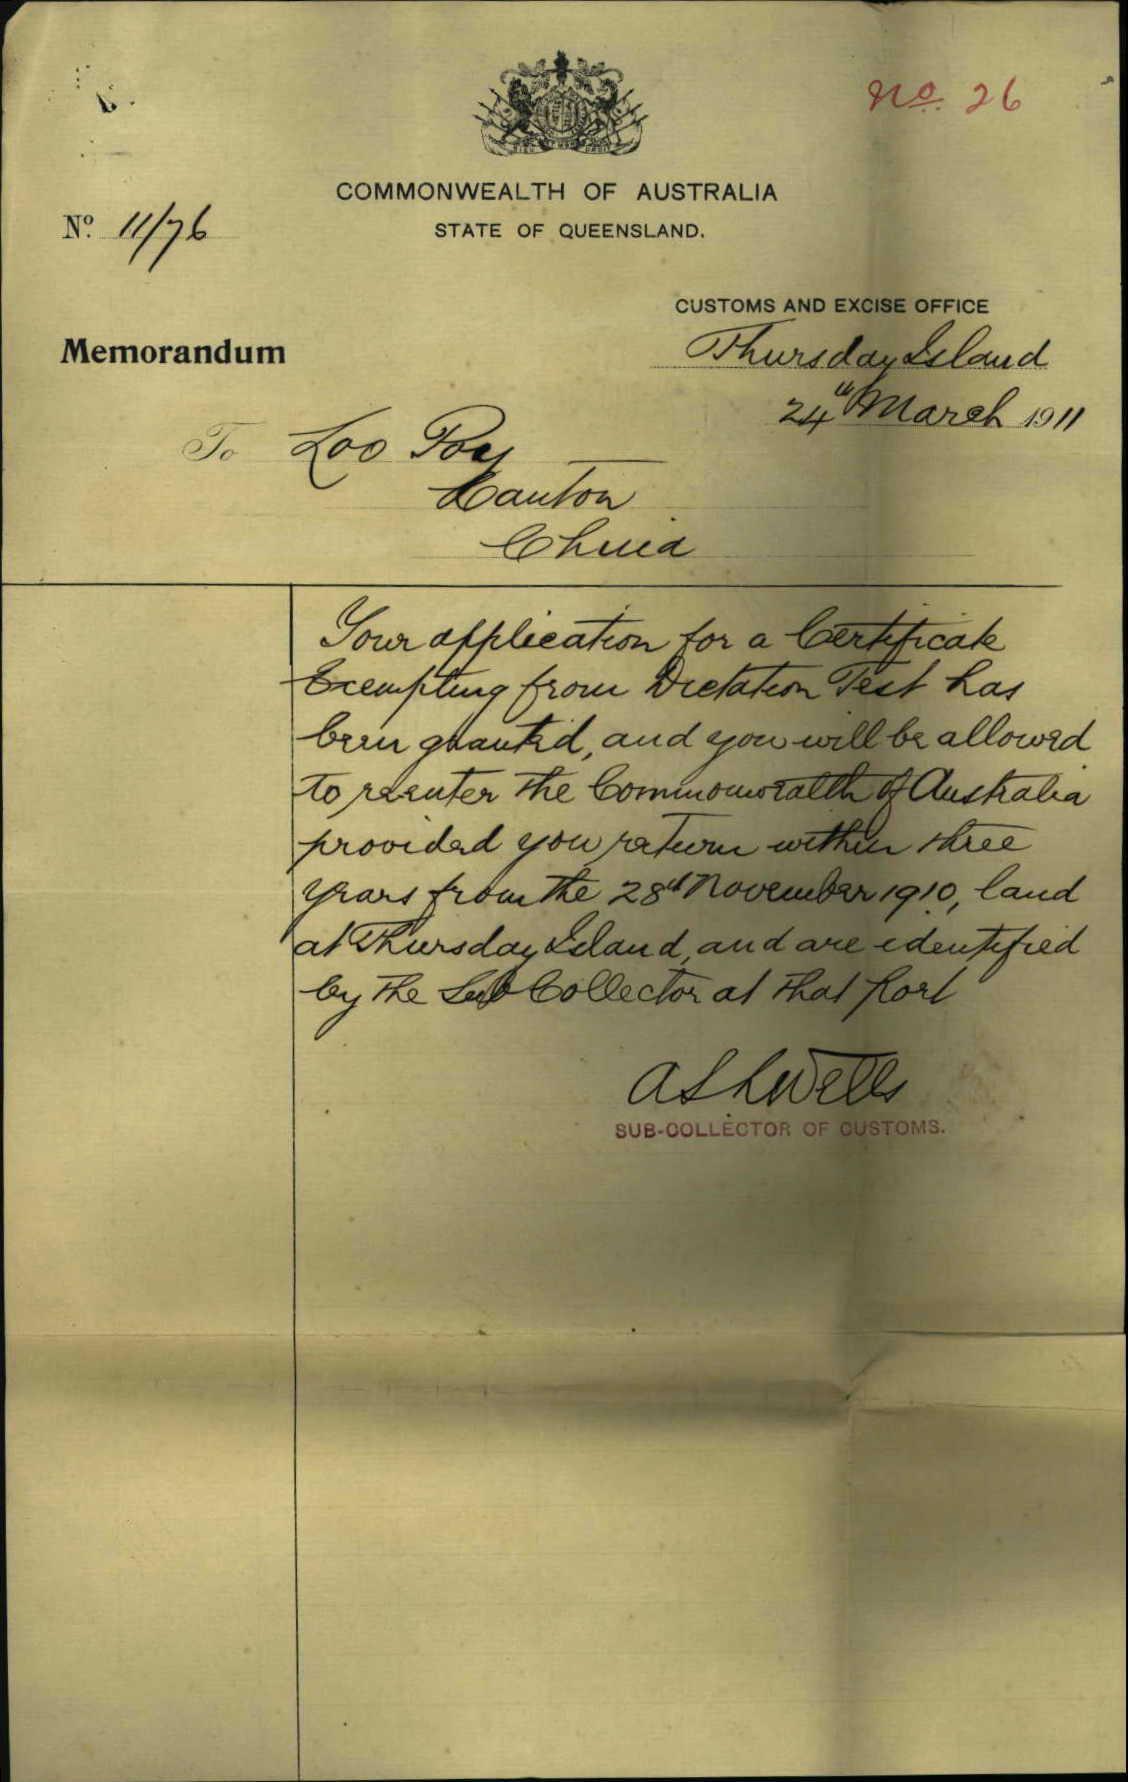 No. 26
COMMONWEALTH OF AUSTRALIA
STATE OF QUEENSLAND.
No. 11/76
CUSTOMS AND EXCISE OFFICE
Memorandum
Thursday Island
24th March 1911
To Loo Poy
Canton
China
Your application for a Certificate
Exempting from Dictation Test has
been granted, and you will be allowed
to reenter the Commonwealth of Australia
provided you return within three
years from the 28th November 1910, land
at Thursday Island, and are identified
by the Sub Collector at that port
Wells
SUB-COLLECTOR OF CUSTOMS.